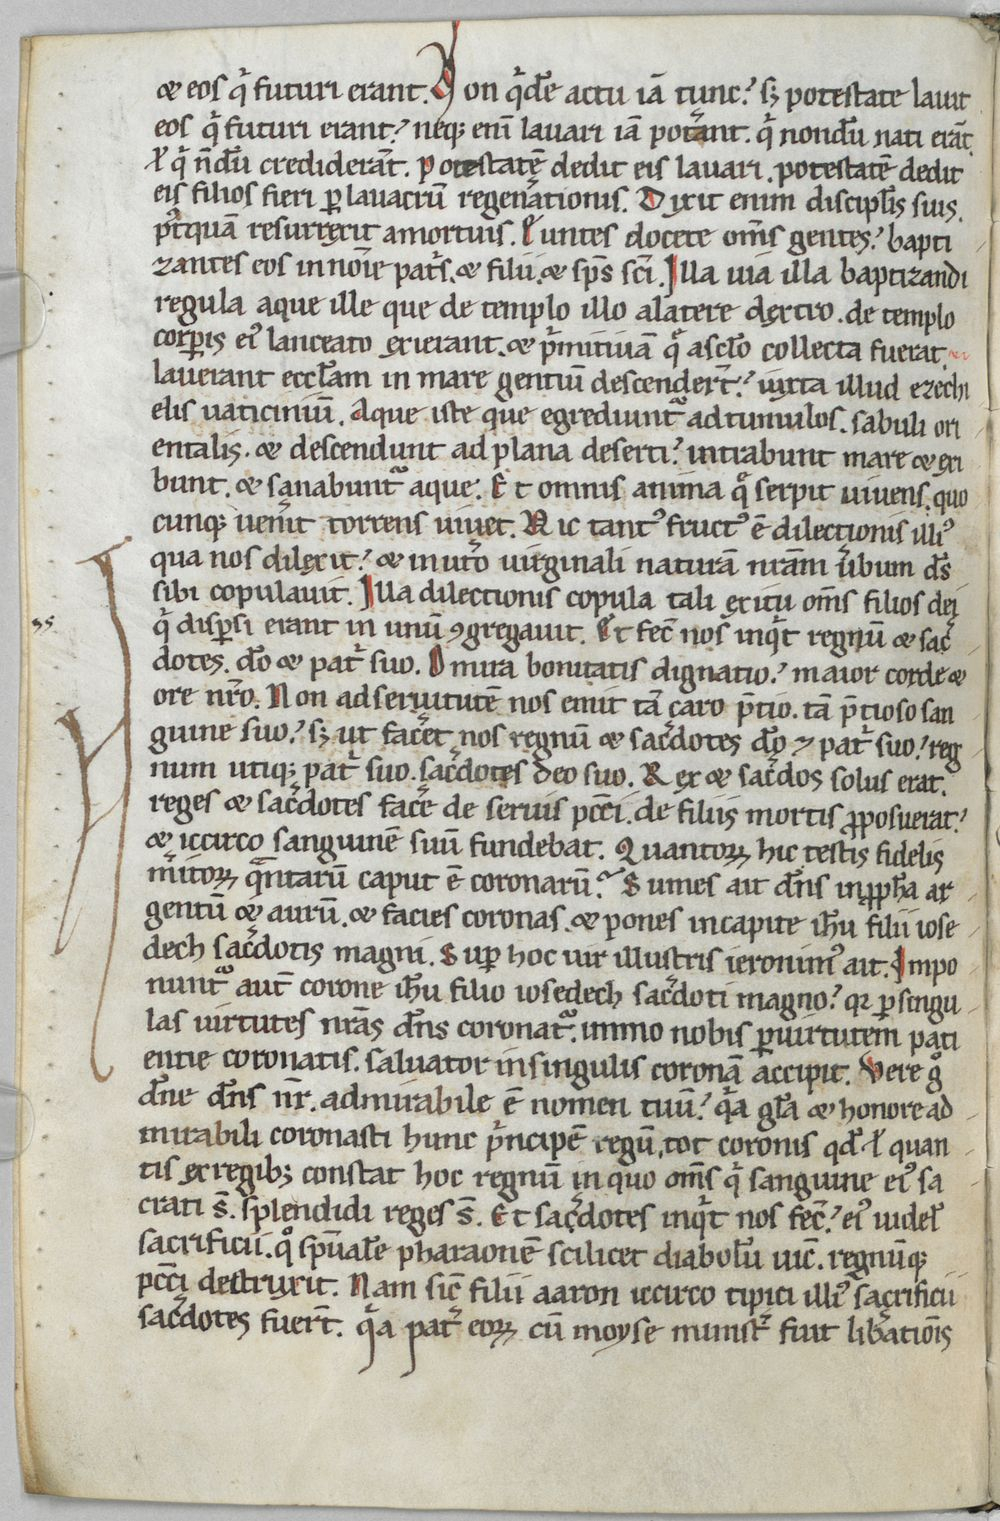 & eos q̇ futuri erant. Non q̇dē actu iā tunc? sꝫ potestate lauit
eos q̇ futuri erant? neqꝫ enī lauari iā pot̃ant. q̇ nondū nati erāt
ł q̇ n̄dū crediderāt. potestatē dedit eis lauari. potestatē dedit
eis filios fieri ꝑ lauacrū regen̓ationis. Dixit enim discipl̄is suis.
p̓tquā resurrexit amortuis. Euntes docete om̄s gentes? bapti
zantes eos in noīe pat̓s. & filii. & sp̄s sc̄i. Illa uia illa baptizandi
regula aque ille que de templo illo alatere dextro. de templo
corꝑis ei᾽ lanceato exierant. & p̓mitiuā q̄ ascl̄o collecta fuerat
lauerant eccl̄am in mare gentiū descender̄t? iuxta illud ezechi
elis uaticiniū. Aque iste que egrediunt᷑ adtumulos. sabuli ori
entalis. & descendunt ad plana deserti? intrabunt mare & exi
bunt. & sanabunt᷑ aque. Et omnis anima q̄ serpit uiuens. quo
cunqꝫ uen̓it torrens uiuet. Hic tant᾽ fruct᾽ ē dilectionis illi᾽
qua nos dilexit? & in ut̓o uirginali naturā nr̄am u̓bum dī̄s
sibi copulauit. Illa dilectionis copula tali exitu om̄s filios dei
q̇ disꝑsi erant in unū ꝯgregauit. Et fec̄ nos inq̇t regnū & sac̓
dotes. dō & pat̓ suo. O mira bonitatis dignatio? maior corde &
ore nr̄o. Non ad seruitutē nos emit tā caro p̄tio. tā p̄tioso san
guine suo? sꝫ ut fac̓et nos regnū & sac̓dotes dō ⁊ pat̓ suo? reg
num utiqꝫ pat̓ suo. sac̓dotes deo suo. Rex & sac̓dos solus erat.
reges & sac̓dotes fac̓e de seruis pcc̄i. de filiis mortis ꝓposuerat?
& iccirco sanguinē suū fundebat. Quantoꝝ hic testis fidelis
m̓itoꝝ q̄ntarū caput ē coronarū? Sumes ait dn̄s in ꝓpha ar
gentū & aurū. & facies coronas. & pones incapite ih̄u filii iose
dech sac̓dotis magni. Suꝑ hoc uir illustris ieronim᾽ ait. Impo
nunt᷑ aut̄ corone ih̄u filio iosedech sac̓doti magno? qꝛ ꝑ singu
las uirtutes nr̄as dn̄s coronat᷑. immo nobis ꝑ uirtutem pati
entie coronatis. saluator in singulis coronā accipit. Vere g̊
dn̄e dn̄s nr̄. admirabile ē nomen tuū? q̇a gl̄a & honore ad
mirabili coronasti hunc p̓ncipē regū, tot coronis qd̄ ł quan
tis ex regibꝫ constat hoc regnū in quo om̄s q̇ sanguine ei᾽ sa
crati s̄. splendidi reges s̄. Et sac̓dotes inq̇t nos fec̄? ei᾽ uidel̄
sacrificii. q̊ sp̄uale pharaonē scilicet diabolū uic̄. regnūqꝫ
pcc̄i destruxit. Nam sic̄ filii aaron iccirco tipici illi᾽ sacrificii
sac̓dotes fuer̄t. q̇a pat̓ eoꝝ cū moyse minist̓ fuit lib̓ationis